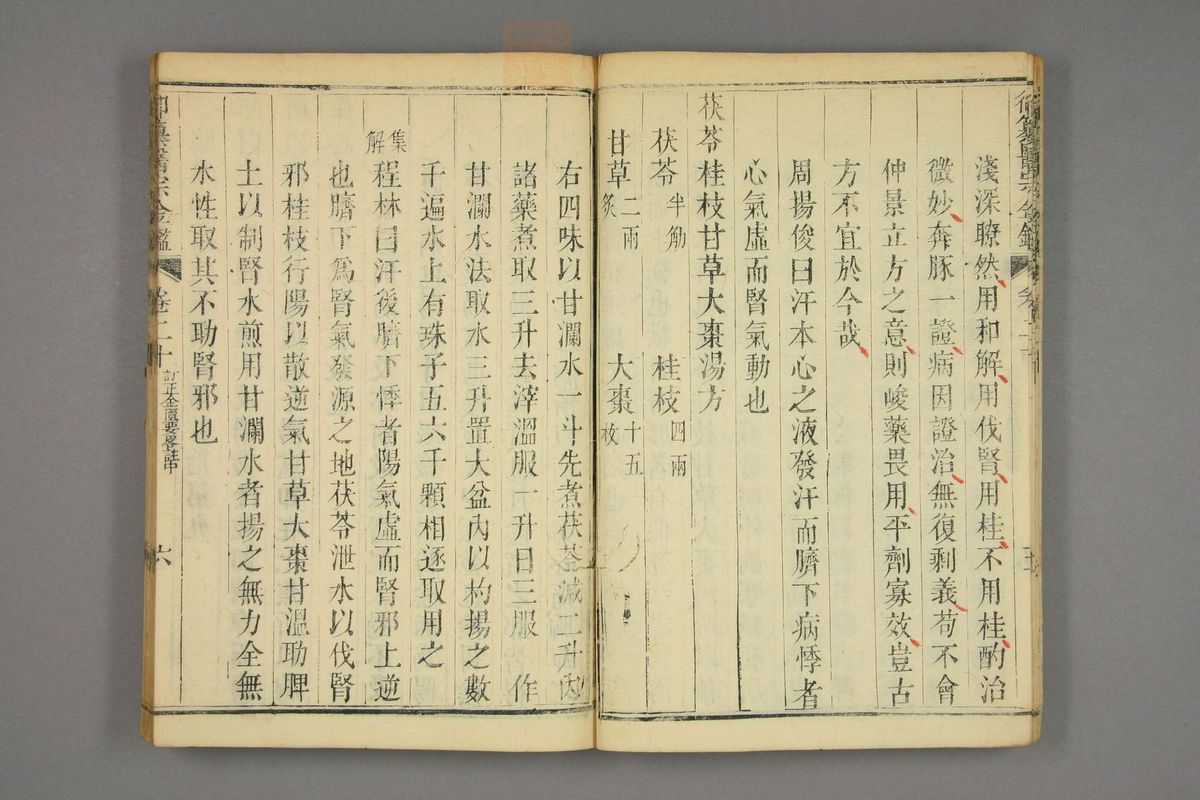 淺深瞭然用和解用伐腎用桂不用桂酌治
微妙奔豚一證病因證治無復剩義苟不會
仲景立方之意則峻藥畏用平劑寡效豈古
方不宜於今哉
周揚俊曰汗本心之液發汗而臍下病悸者
心氣虛而腎氣動也
茯苓桂枝甘草大棗湯方
茯苓半觔 桂枝四兩
甘草二兩炙 大棗十五枚
右四味以甘瀾水一斗先煮茯苓減二升內
諸藥煮取三升去滓溫服一升日三服 作
甘瀾水法取水三升置大盆內以杓揚之數
千遍水上有珠子五六千顆相逐取用之
集解 程林曰汗後臍下悸者陽氣虛而腎邪上逆
也臍下爲腎氣發源之地茯苓泄水以伐腎
邪桂枝行陽以散逆氣甘草大棗甘溫助脾
土以制腎水煎用甘瀾水者揚之無力全無
水性取其不助腎邪也
御纂醫宗金鑑 卷二十 訂正金匱要畧註中 六